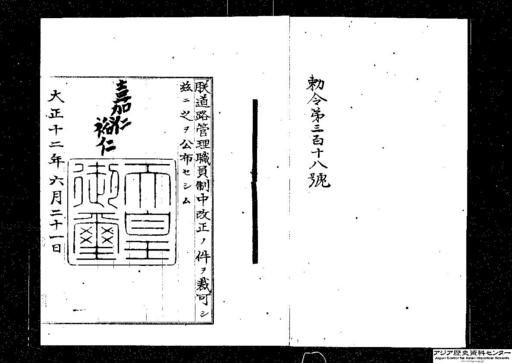 勅令第三百十八號
朕道路管理職員制中改正ノ件ヲ裁可シ
茲ニ之ヲ公布セシム
嘉仁
裕仁
天皇御璽
大正十二年六月二十一日
アジア歴史資料センター
Japan Center for Asian Historical Records